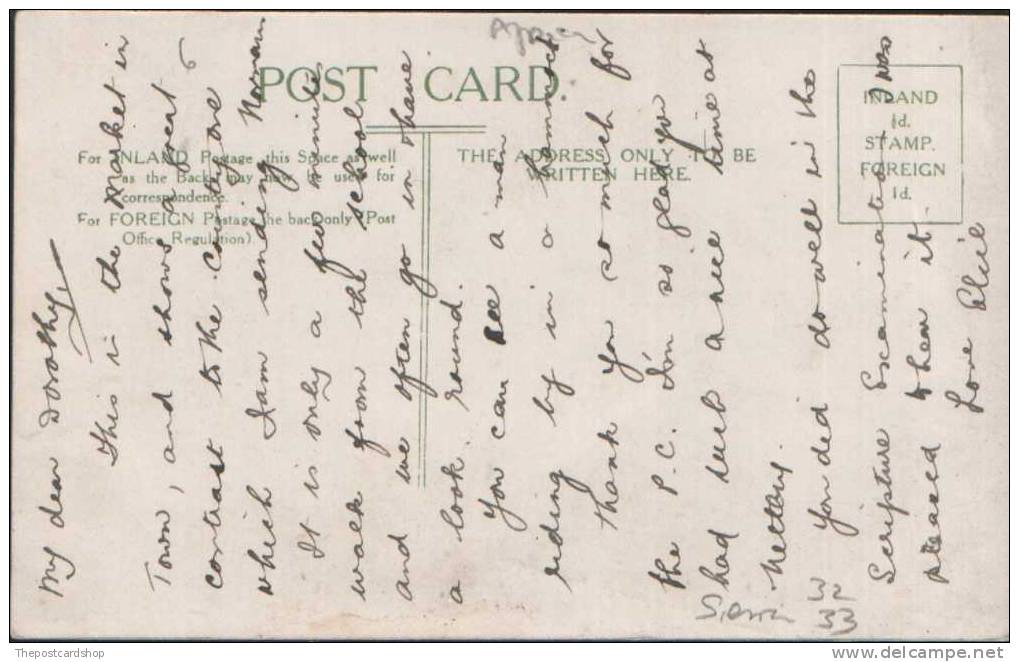 My dear Dorothy,
This is the Market in
Town, and shows a great
contrast to the country one
which I am sending Norman
It is only a few minutes
walk from the school
and we often go in & have
a look round.
You can see a man
riding by in a hammock
Thank you so much for
the P.C. I'm so glad you
had such a nice time at
Netley.
You did do well in the
Scripture Examination, I was
pleased to hear it.
Love Elsie
POST CARD.
For INLAND Postage, this Space as well
as the Back may now be used for
correspondence.
For FOREIGN Postage the back only (Post
Office Regulation).
THE ADDRESS ONLY TO BE
WRITTEN HERE.
INLAND
½d.
STAMP.
FOREIGN
1d.
Africa
Sierra
32
33
Thepostcardshop
delcampe.net